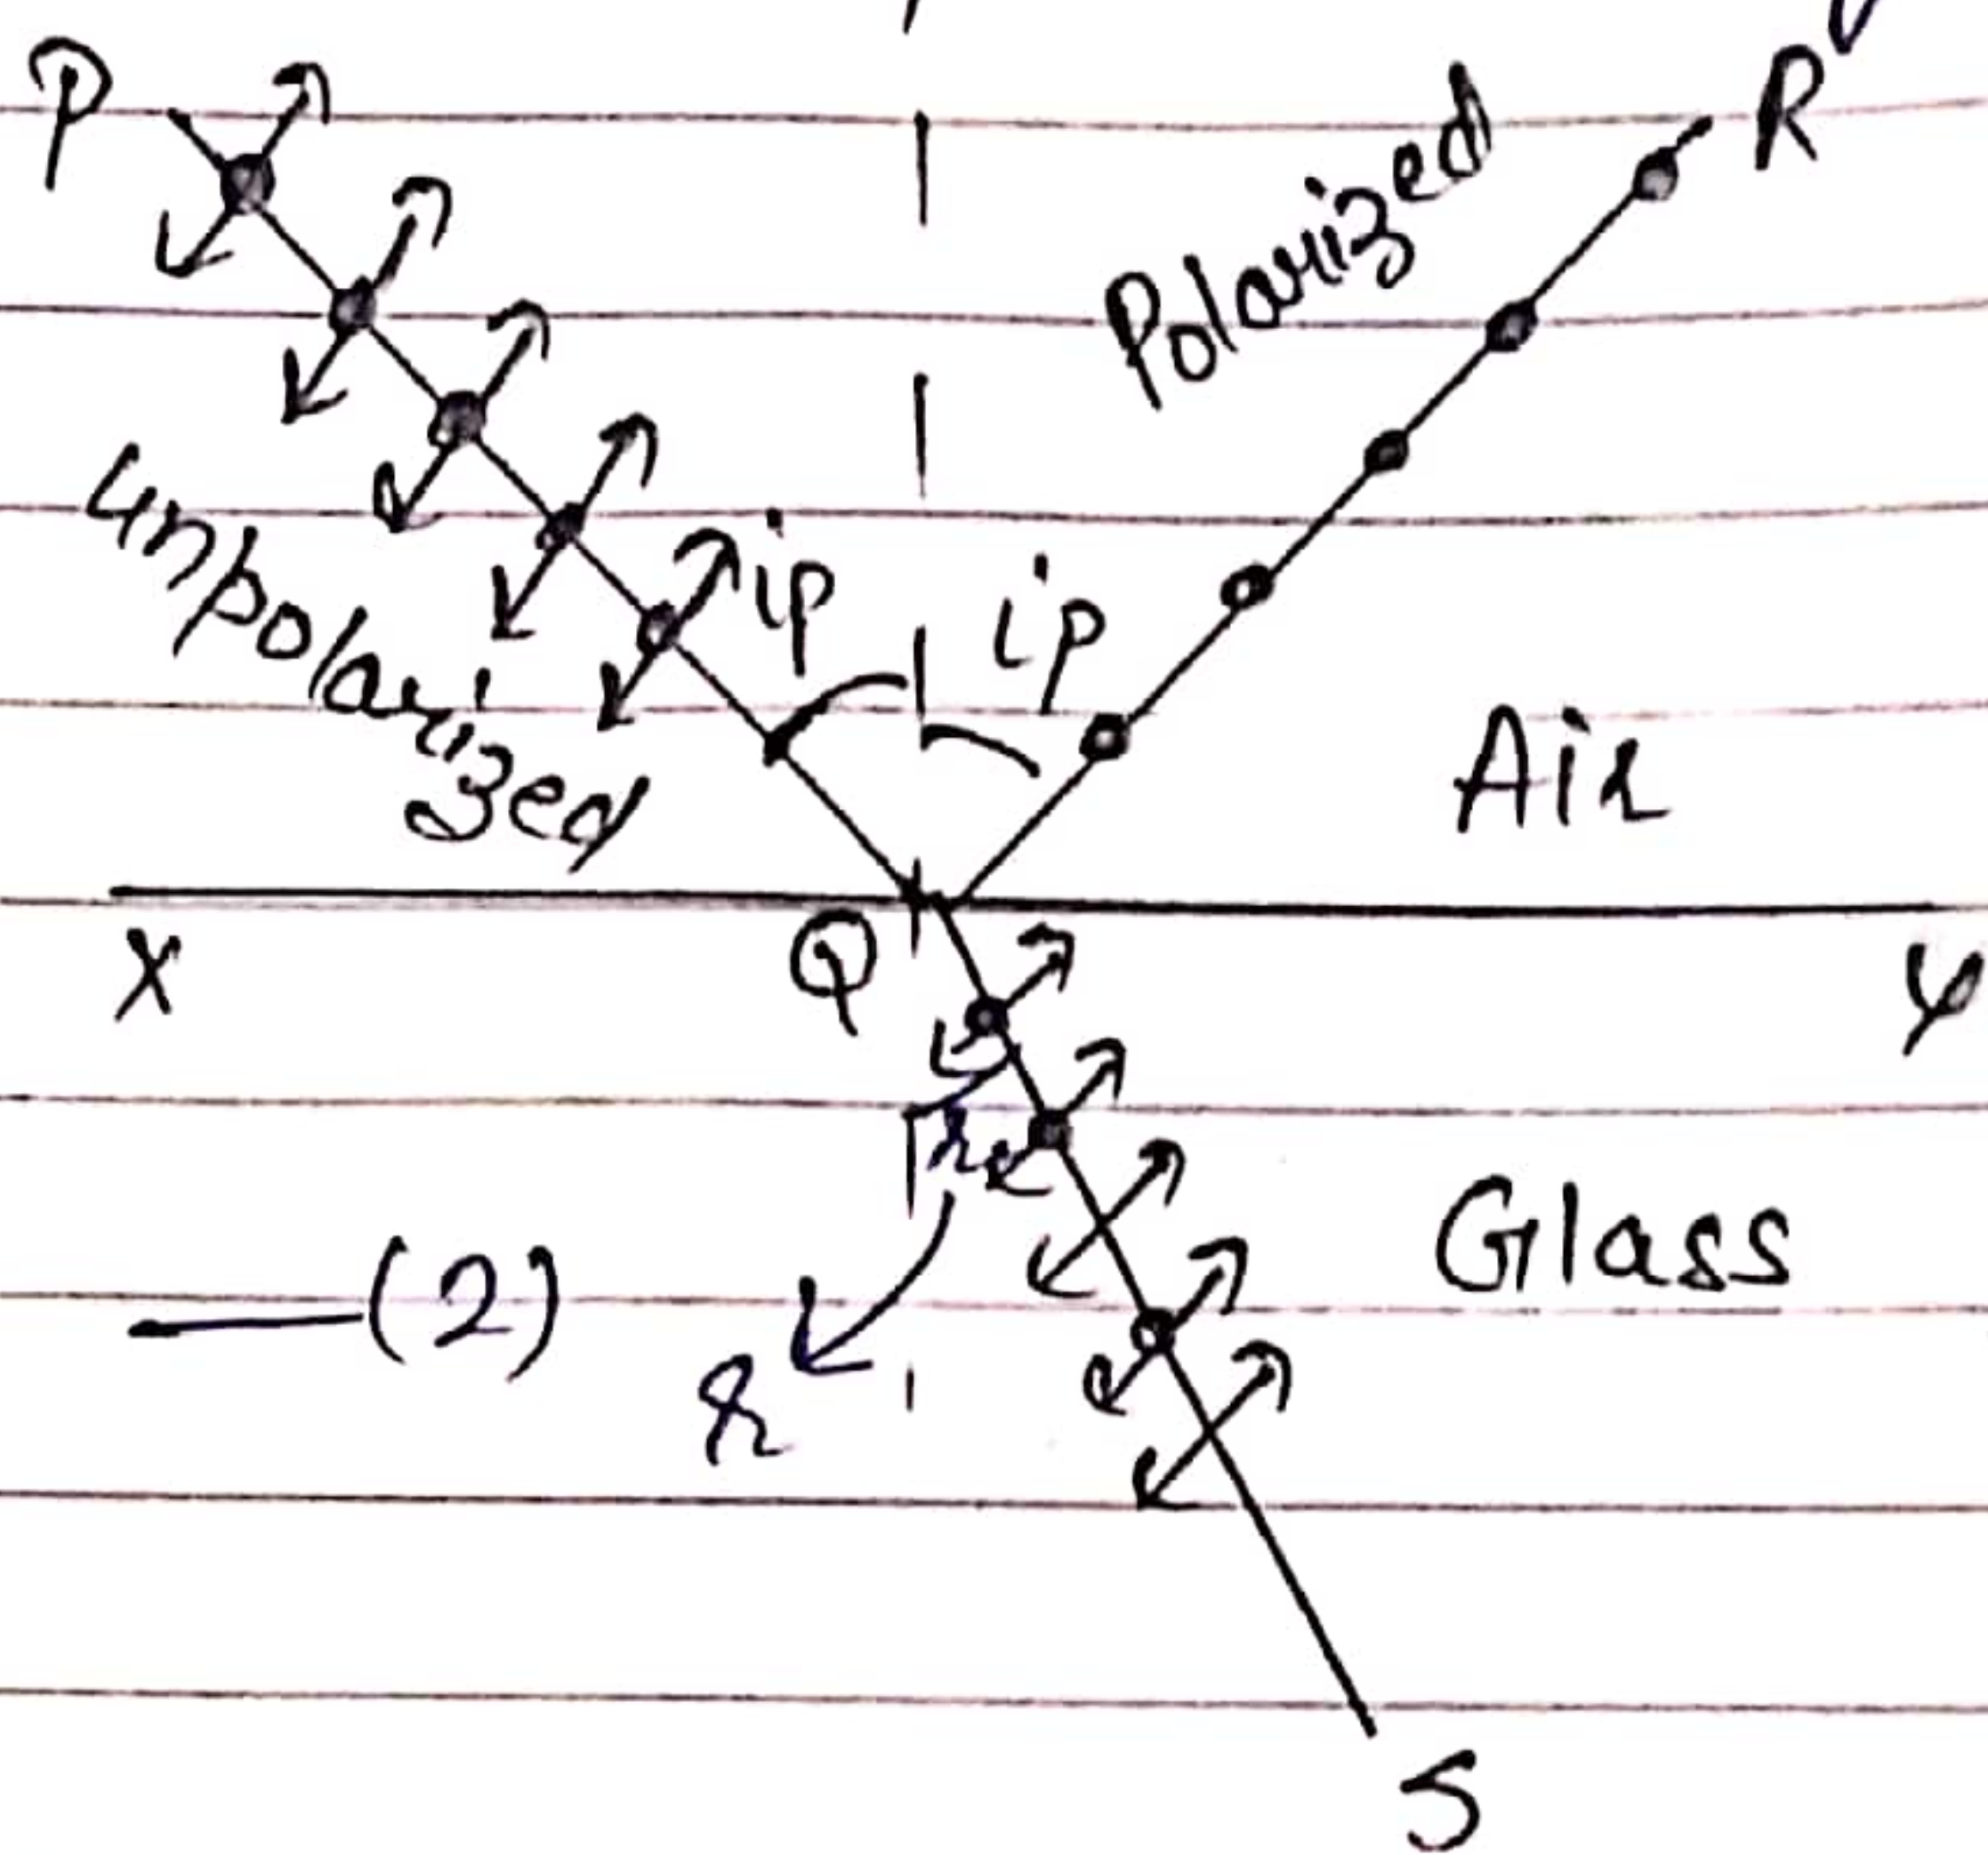 P
R
Polarized
Unpolarized
ip
ip
Air
X
Q
Y
r
Glass
—(2)
r
S